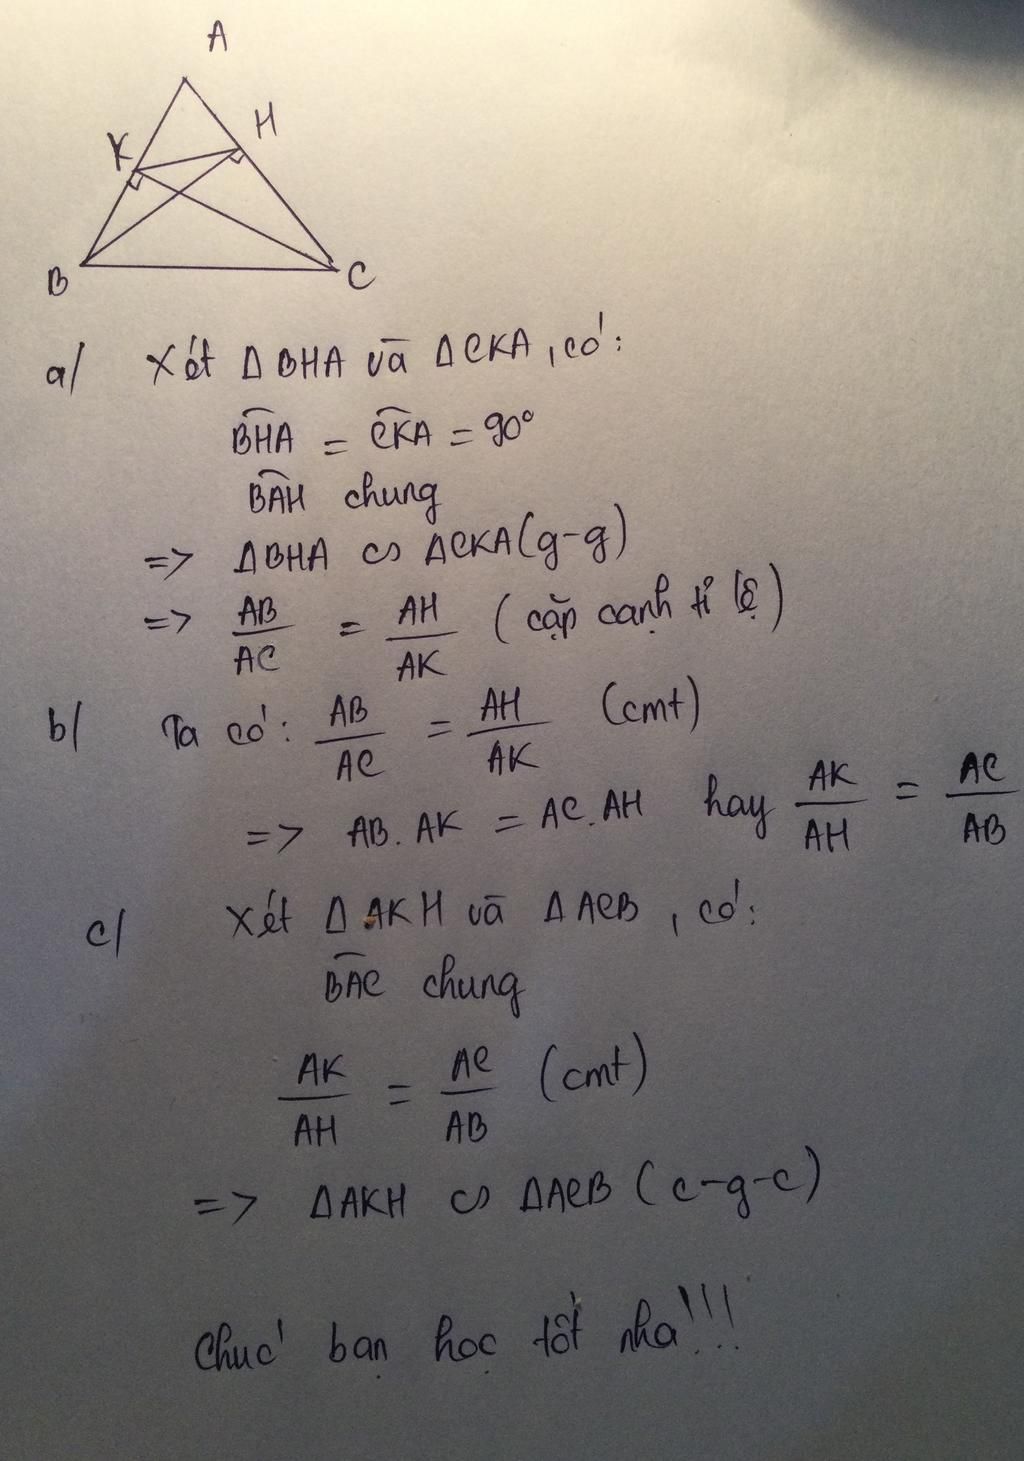 A
H
K
B
C
a/ Xét Δ BHA và Δ CKA, có:
B͡HA = C͡KA = 90°
B͡AH chung
=> ΔBHA ∽ ΔCKA (g-g)
=> AB/AC = AH/AK (cặp cạnh tỉ lệ)
b/ Ta có: AB/AC = AH/AK (cmt)
=> AB. AK = AC. AH hay AK/AH = AC/AB
c/ Xét Δ AKH và Δ ACB, có:
B͡AC chung
AK/AH = AC/AB (cmt)
=> ΔAKH ∽ ΔACB (c-g-c)
Chúc bạn học tốt nha!!!